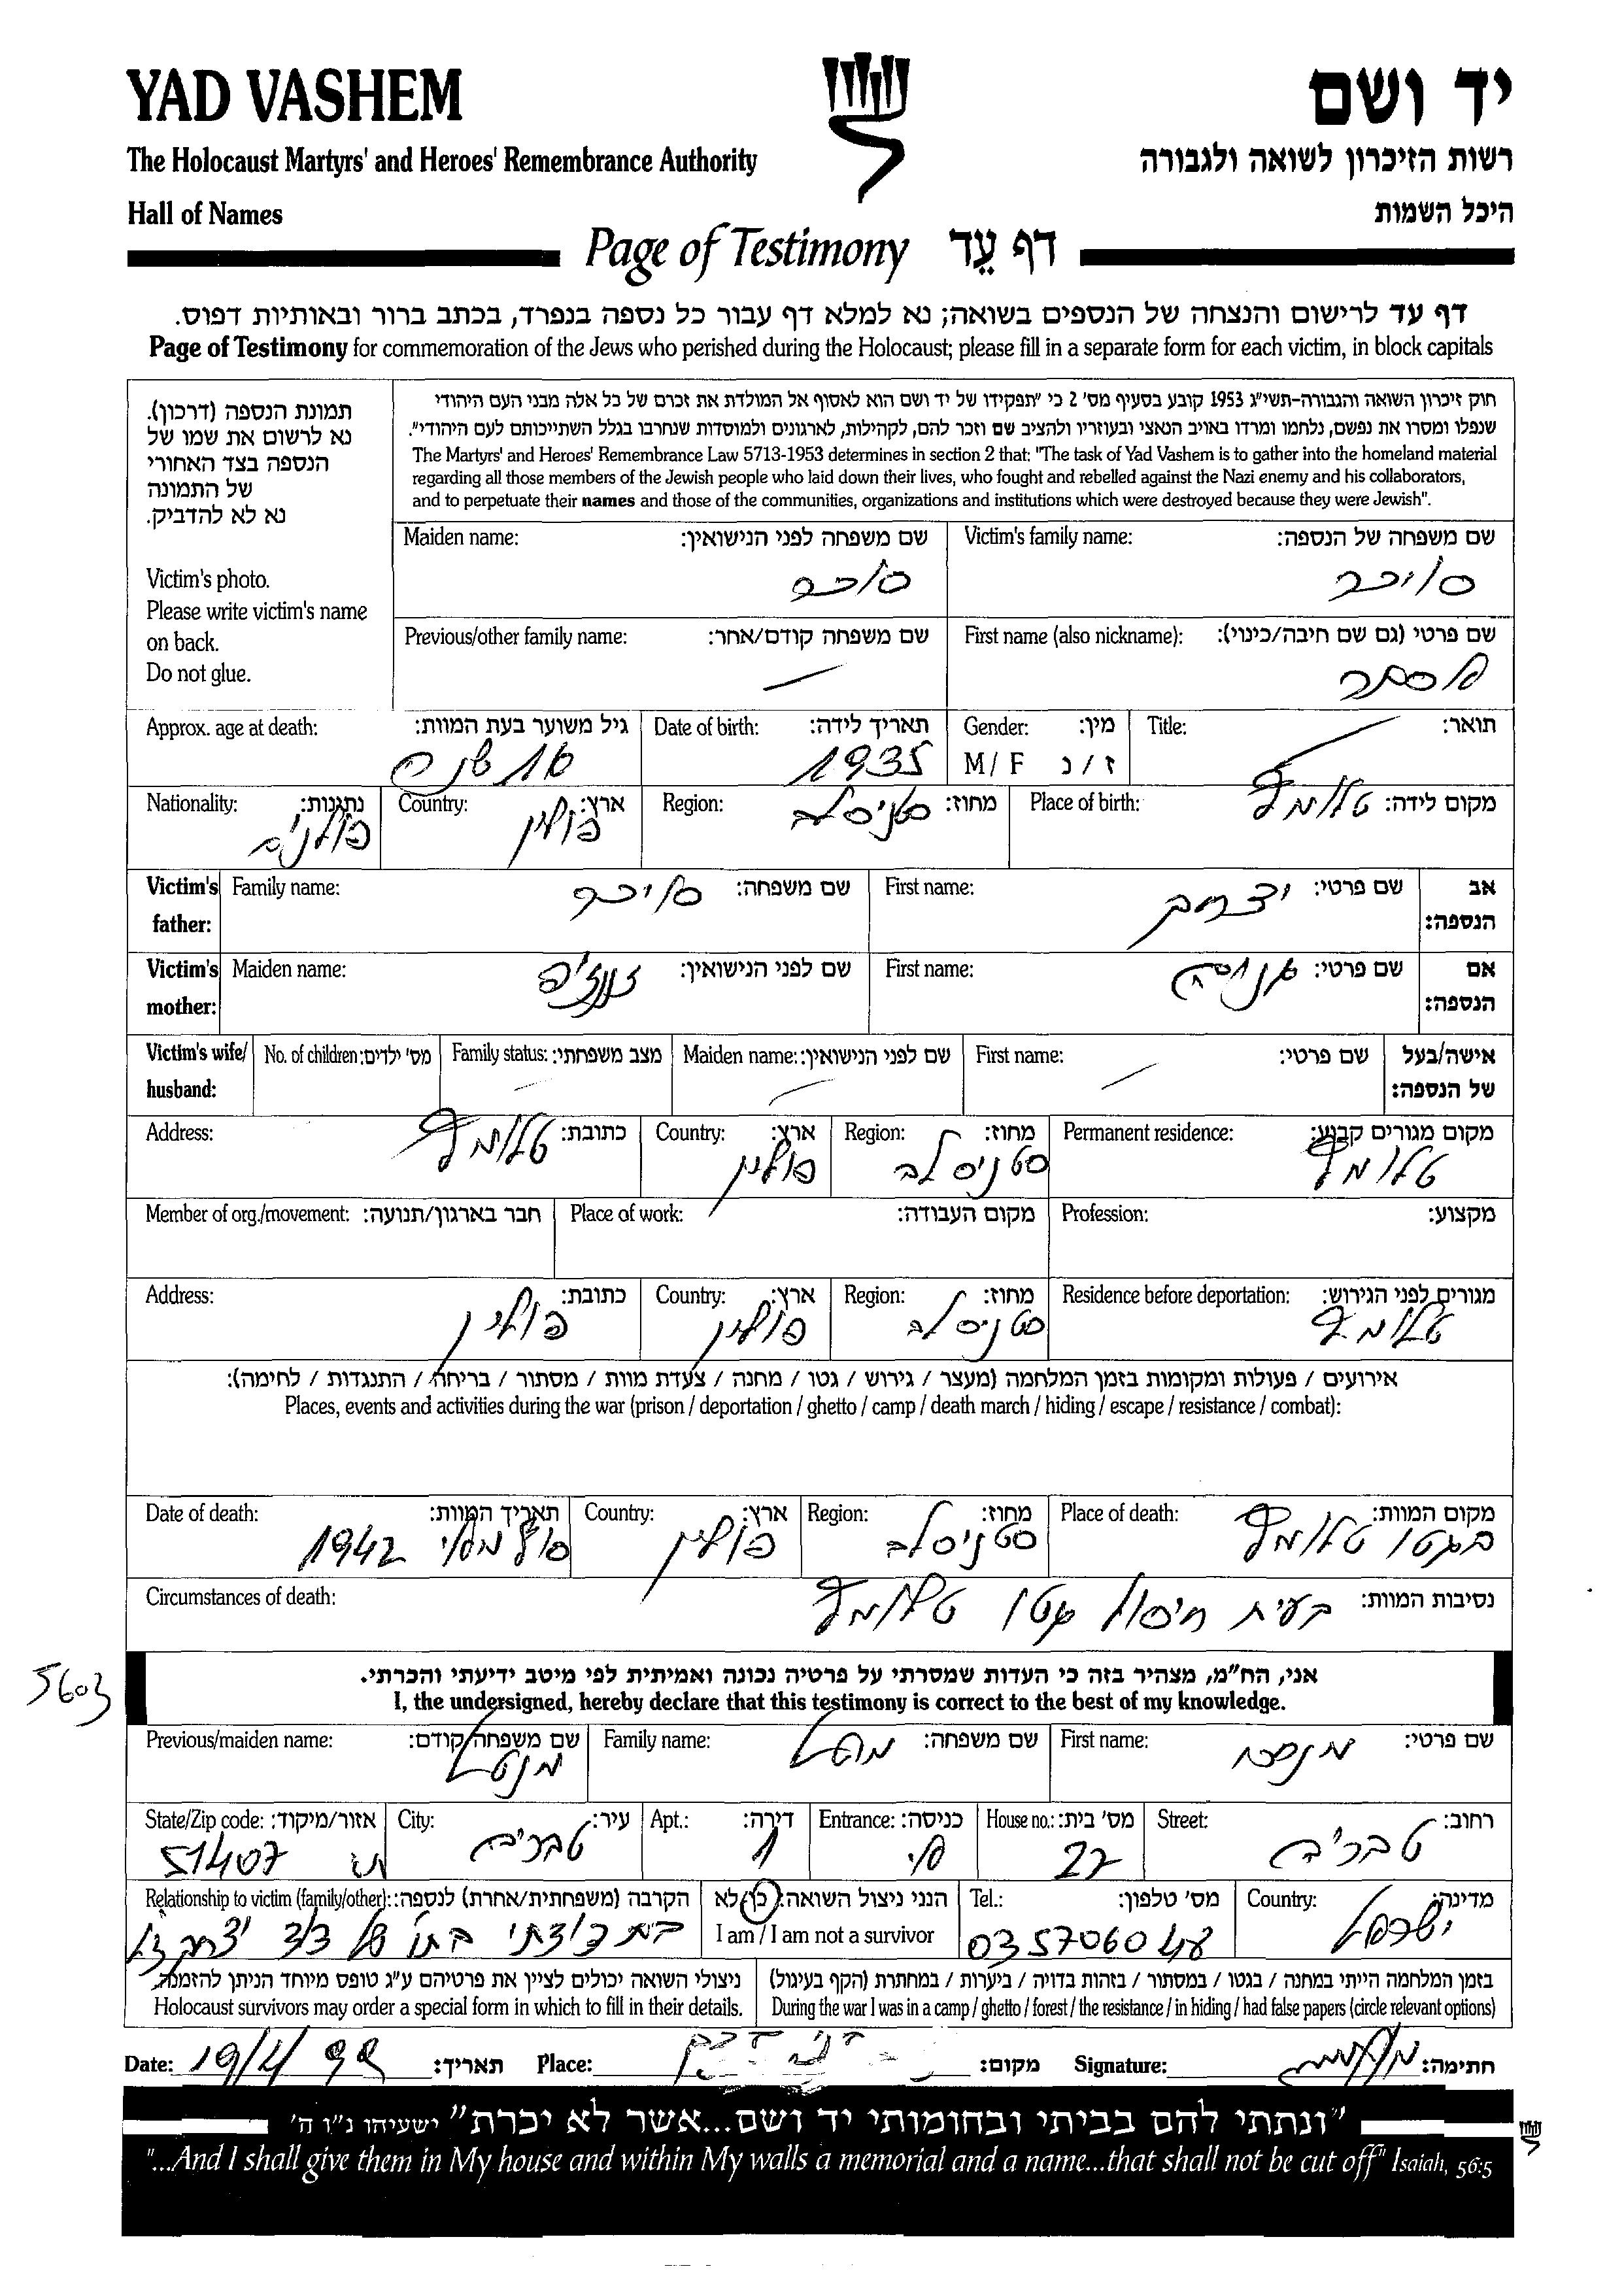 YAD VASHEM
יד ושם
The Holocaust Martyrs' and Heroes' Remembrance Authority
רשות הזיכרון לשואה ולגבורה
Hall of Names
היכל השמות
Page of Testimony דף עֵד
דף עד לרישום והנצחה של הנספים בשואה; נא למלא דף עבור כל נספה בנפרד, בכתב ברור ובאותיות דפוס.
Page of Testimony for commemoration of the Jews who perished during the Holocaust; please fill in a separate form for each victim, in block capitals
תמונת הנספה (דרכון).
נא לרשום את שמו של
הנספה בצד האחורי
של התמונה
נא לא להדביק.
Victim's photo.
Please write victim's name
on back.
Do not glue.
חוק זיכרון השואה והגבורה-תשי"ג 1953 קובע בסעיף מס' 2 כי "תפקידו של יד ושם הוא לאסוף אל המולדת את זכרם של כל אלה מבני העם היהודי
שנפלו ומסרו את נפשם, נלחמו ומרדו באויב הנאצי ובעוזריו ולהציב שם וזכר להם, לקהילות, לארגונים ולמוסדות שנחרבו בגלל השתייכותם לעם היהודי".
The Martyrs' and Heroes' Remembrance Law 5713-1953 determines in section 2 that: "The task of Yad Vashem is to gather into the homeland material
regarding all those members of the Jewish people who laid down their lives, who fought and rebelled against the Nazi enemy and his collaborators,
and to perpetuate their names and those of the communities, organizations and institutions which were destroyed because they were Jewish".
Victim's family name: שם משפחה של הנספה:
Maiden name: שם משפחה לפני הנישואין:
First name (also nickname): שם פרטי (גם שם חיבה/כינוי):
אסתר
Previous/other family name: שם משפחה קודם/אחר:
Title: תואר:
Gender: מין:
M / F ז / נ
Date of birth: תאריך לידה:
1935
Approx. age at death: גיל משוער בעת המוות:
Place of birth: מקום לידה: טלומץ
Region: מחוז: סטניסלב
Country: ארץ: פולין
Nationality: נתינות: פולנית
Victim's father: אב הנספה:
First name: שם פרטי: יצחק
Family name: שם משפחה:
Victim's mother: אם הנספה:
First name: שם פרטי:
Maiden name: שם לפני הנישואין:
Victim's wife/ husband: אישה/בעל של הנספה:
First name: שם פרטי:
Maiden name: שם לפני הנישואין:
Family status: מצב משפחתי:
No. of children: מס' ילדים:
Permanent residence: מקום מגורים קבוע: טלומץ
Region: מחוז: סטניסלב
Country: ארץ: פולין
Address: כתובת: טלומץ
Profession: מקצוע:
Place of work: מקום העבודה:
Member of org./movement: חבר בארגון/תנועה:
Residence before deportation: מגורים לפני הגירוש: טלומץ
Region: מחוז: סטניסלב
Country: ארץ: פולין
Address: כתובת: פולין
אירועים / פעולות ומקומות בזמן המלחמה (מעצר / גירוש / גטו / מחנה / צעדת מוות / מסתור / בריחה / התנגדות / לחימה):
Places, events and activities during the war (prison / deportation / ghetto / camp / death march / hiding / escape / resistance / combat):
Place of death: מקום המוות: בגטו טלומץ
Region: מחוז: סטניסלב
Country: ארץ: פולין
Date of death: תאריך המוות: 1942
Circumstances of death: נסיבות המוות: בעית חיסול גטו טלומץ
5603
אני, הח"מ, מצהיר בזה כי העדות שמסרתי על פרטיה נכונה ואמיתית לפי מיטב ידיעתי והכרתי.
I, the undersigned, hereby declare that this testimony is correct to the best of my knowledge.
First name: שם פרטי:
Family name: שם משפחה:
Previous/maiden name: שם משפחה קודם: מנטל
Street: רחוב: טבריה
House no.: מס' בית: 22
Entrance: כניסה:
Apt.: דירה: 1
City: עיר:
State/Zip code: אזור/מיקוד: 51407
Country: מדינה: ישראל
Tel.: מס' טלפון:
הנני ניצול השואה: כן/לא
I am / I am not a survivor
Relationship to victim (family/other): הקרבה (משפחתית/אחרת) לנספה:
בת דודתי בתו של דוד יצחק ז"ל
בזמן המלחמה הייתי במחנה / בגטו / במסתור / בזהות בדויה / ביערות / במחתרת (הקף בעיגול)
During the war I was in a camp / ghetto / forest / the resistance / in hiding / had false papers (circle relevant options)
ניצולי השואה יכולים לציין את פרטיהם ע"ג טופס מיוחד הניתן להזמנה.
Holocaust survivors may order a special form in which to fill in their details.
Signature: חתימה:
Place: מקום:
Date: תאריך:
"ונתתי להם בביתי ובחומותי יד ושם...אשר לא יכרת" ישעיהו נ"ו ה'
"...And I shall give them in My house and within My walls a memorial and a name...that shall not be cut off" Isaiah, 56:5